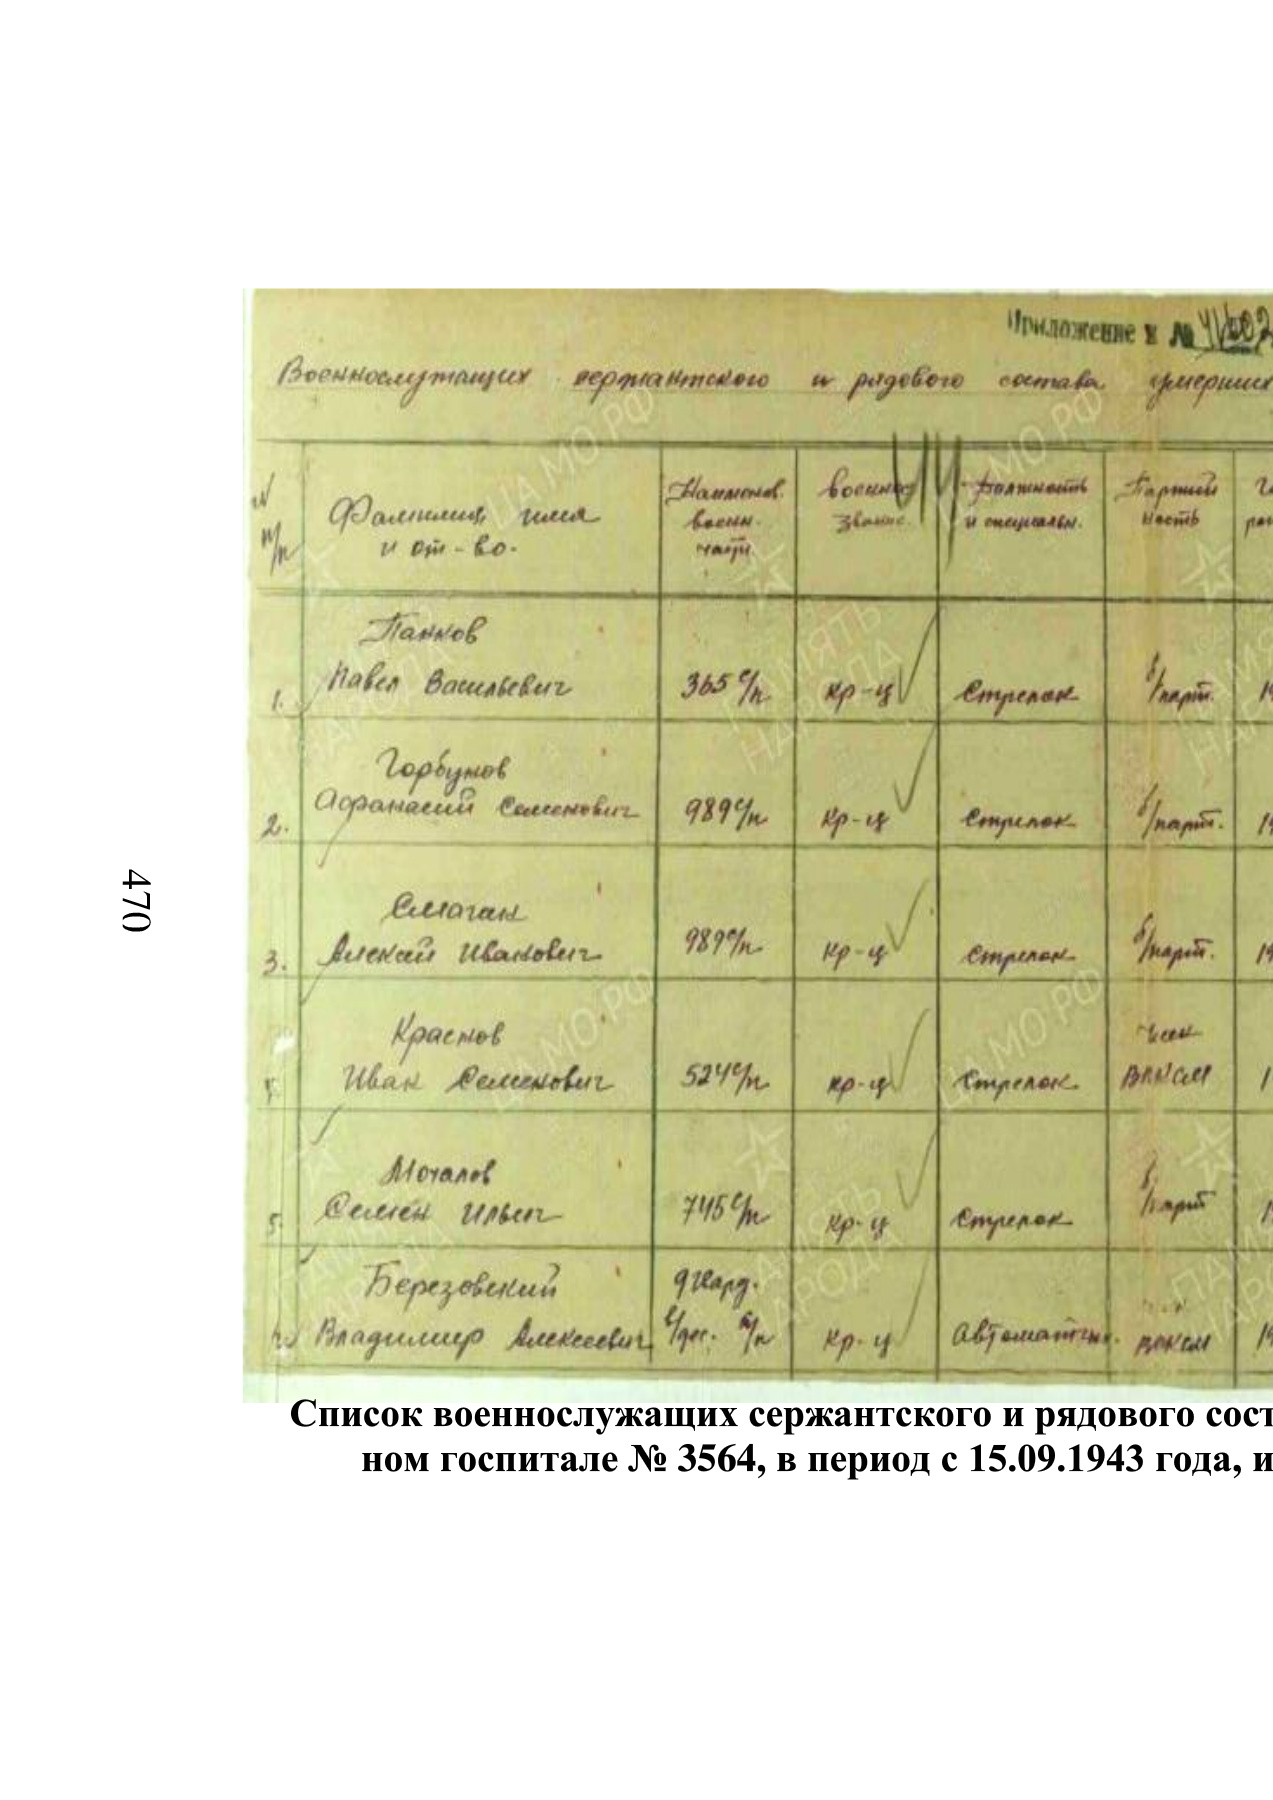 Приложение к №
Военнослужащих сержантского и рядового состава умерших
№ п/п
Фамилия имя и от-во.
Наименов. воен. части
Военное звание
Должность и специальн.
Партий ность
1. Панков Павел Васильевич 365 с/п кр-ц Стрелок б/парт.
2. Горбунов Афанасий Семенович 989 с/п кр-ц Стрелок б/парт.
3. Алексей Иванович 989 с/п кр-ц Стрелок б/парт.
Краснов Иван Семенович 524 с/п кр-ц Стрелок член ВЛКСМ
5. Мочалов Семен Ильич 745 с/п кр-ц Стрелок б/парт
Березовский Владимир Алексеевич 9 гвард. с/дес. п/п кр-ц Автоматчик. ВЛКСМ
Список военнослужащих сержантского и рядового сост
ном госпитале № 3564, в период с 15.09.1943 года, и
470
ЦАМО РФ
ПАМЯТЬ НАРОДА